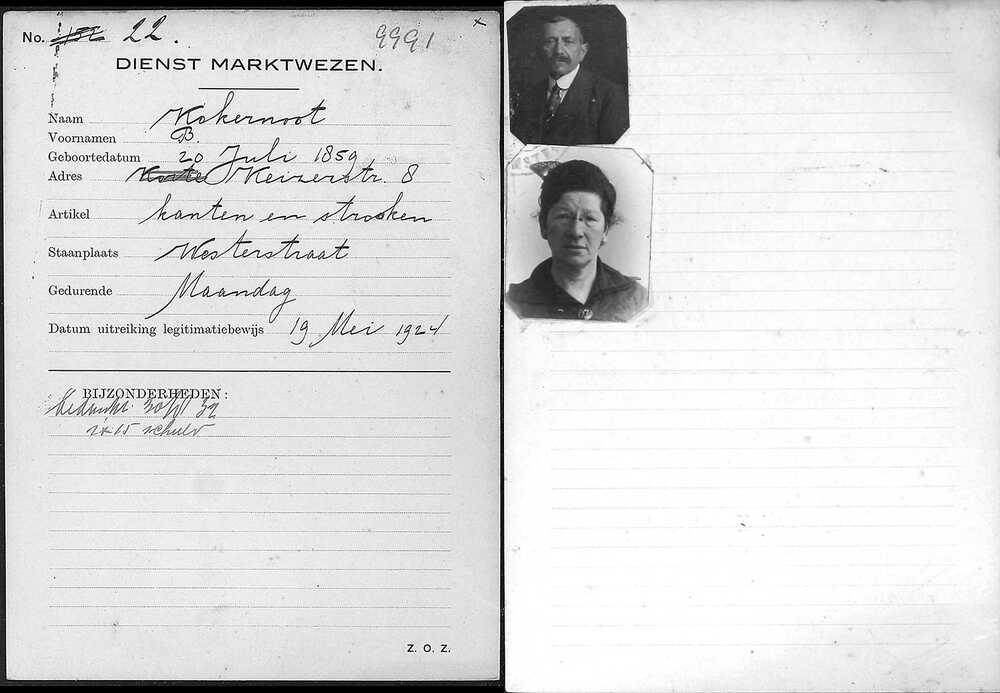 No. 22. 9991
DIENST MARKTWEZEN.
Naam Kokernoot
Voornamen B.
Geboortedatum 20 Juli 1859
Adres Korte Keizerstr. 8
Artikel kanten en stroken
Staanplaats Westerstraat
Gedurende Maandag
Datum uitreiking legitimatiebewijs 19 Mei 1924
BIJZONDERHEDEN:
Bedankt 32
schuld
Z. O. Z.